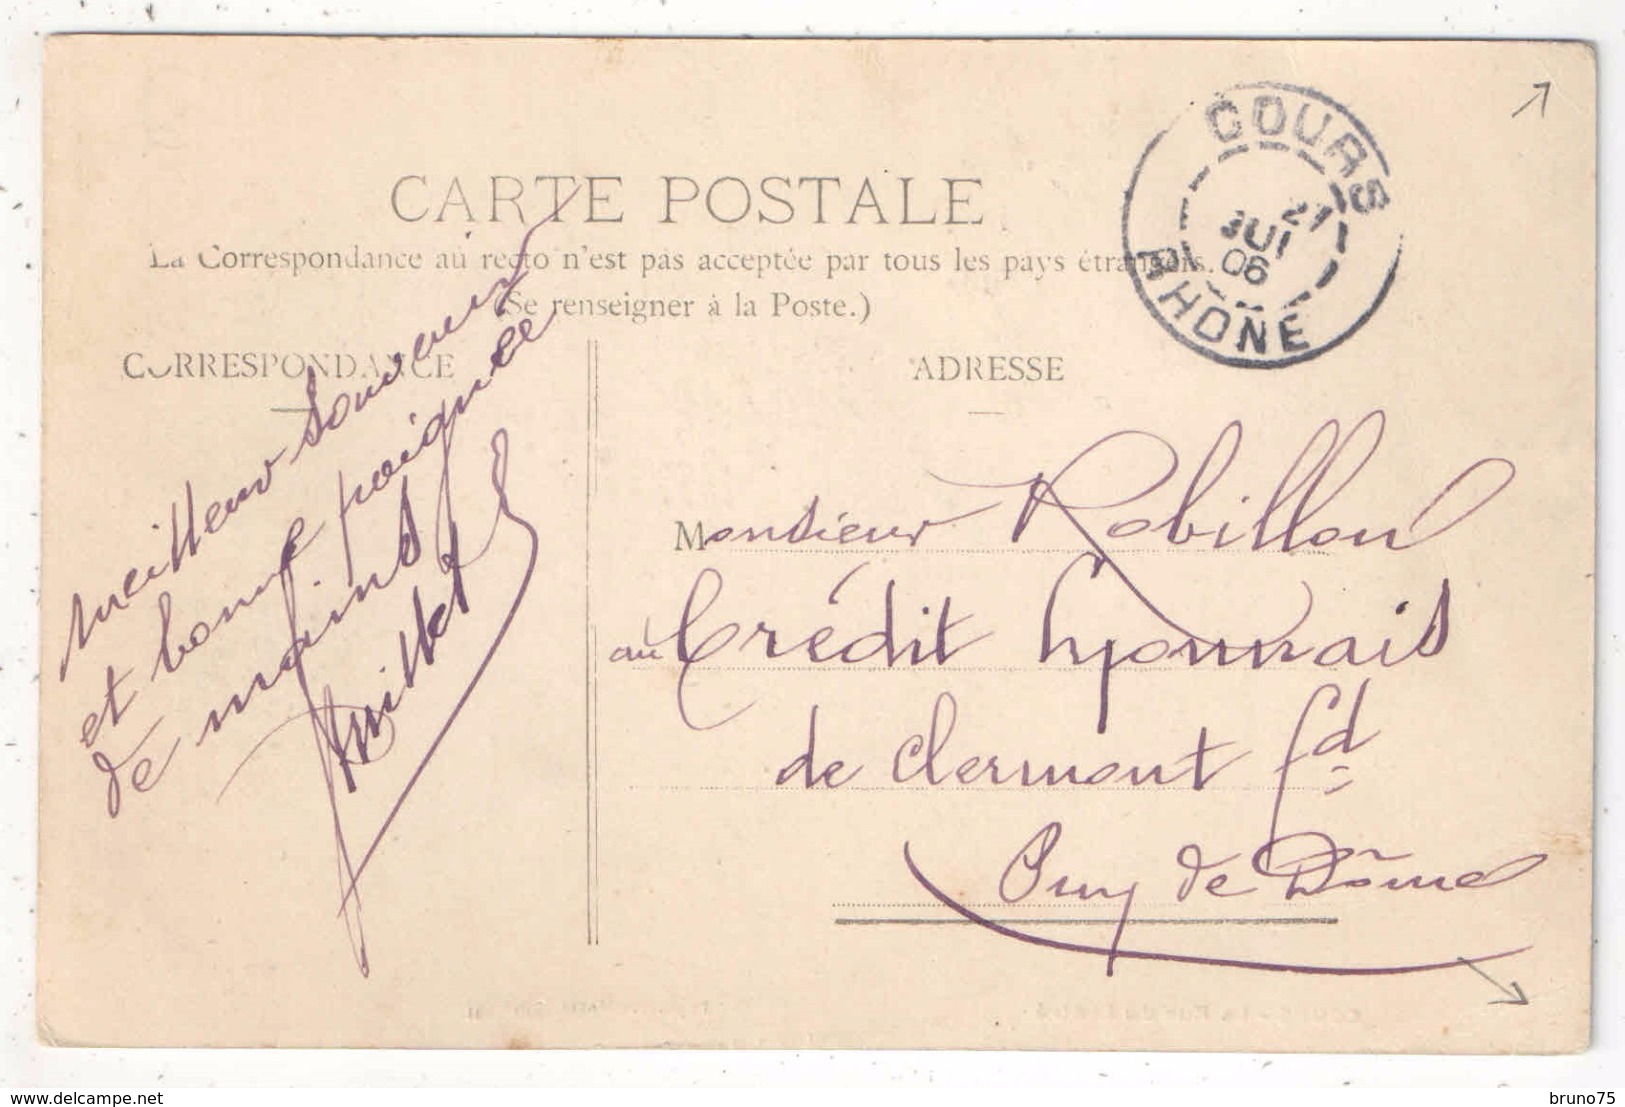 CARTE POSTALE
La Correspondance au recto n'est pas acceptée par tous les pays étrangers.
(Se renseigner à la Poste.)
CORRESPONDANCE
ADRESSE
COURS
21
JUI
06
RHONE
Meilleur Souvenir
et bonne poignée
de mains
Millet
Monsieur Robillon
au Crédit Lyonnais
de Clermont Fd
Puy de Dôme
www.delcampe.net
bruno75